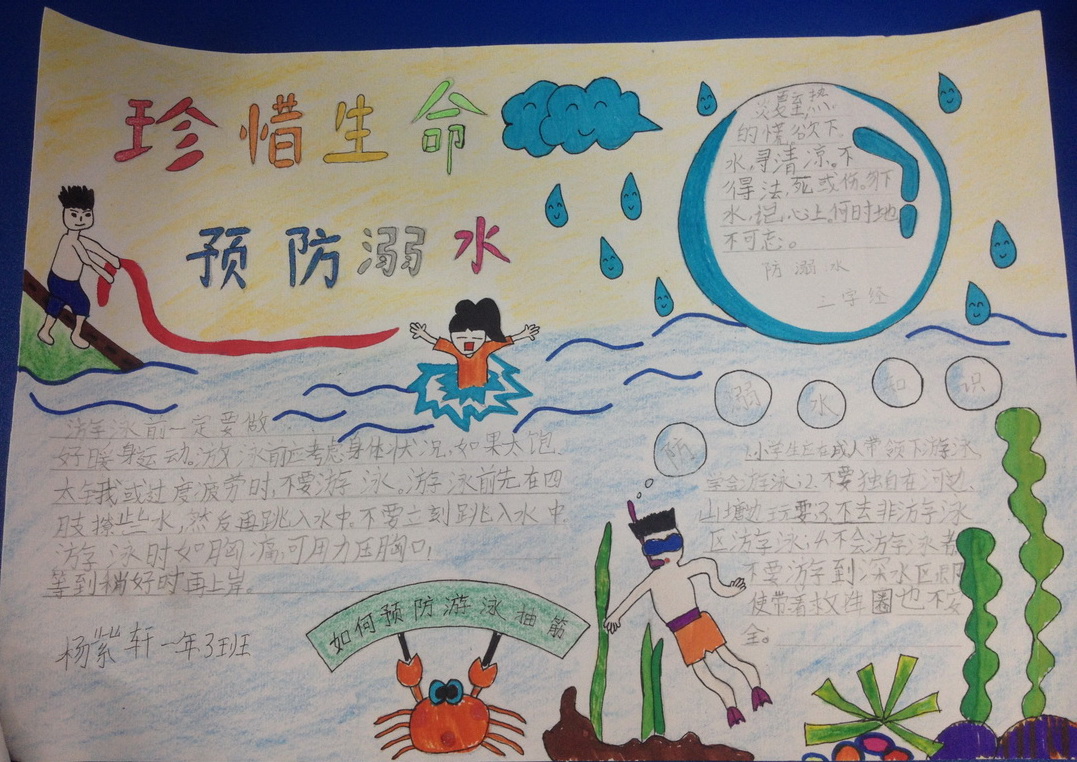 珍惜生命
预防溺水
炎夏至,热
的慌。欲下
水,寻清凉。不
得法,死或伤。
水,心上。何时地
不可忘。
防溺水
三字经
防溺水知识
游泳前一定要做
好暖身运动。游泳前应考虑身体状况,如果太饱、
太饿或过度疲劳时,不要游泳。游泳前先在四
肢撩些水,然后再跳入水中。不要立刻跳入水中.
游泳时如胸痛,可用力压胸口,
等到稍好时再上岸。
1.小学生应在成人带领下游泳
学会游泳;2.不要独自在河边、
山塘边玩耍3.不去非游泳
区游泳;4.不会游泳者
不要游到深水区
使带着救生圈也不安
全。
如何预防游泳抽筋
杨紫轩一年3班